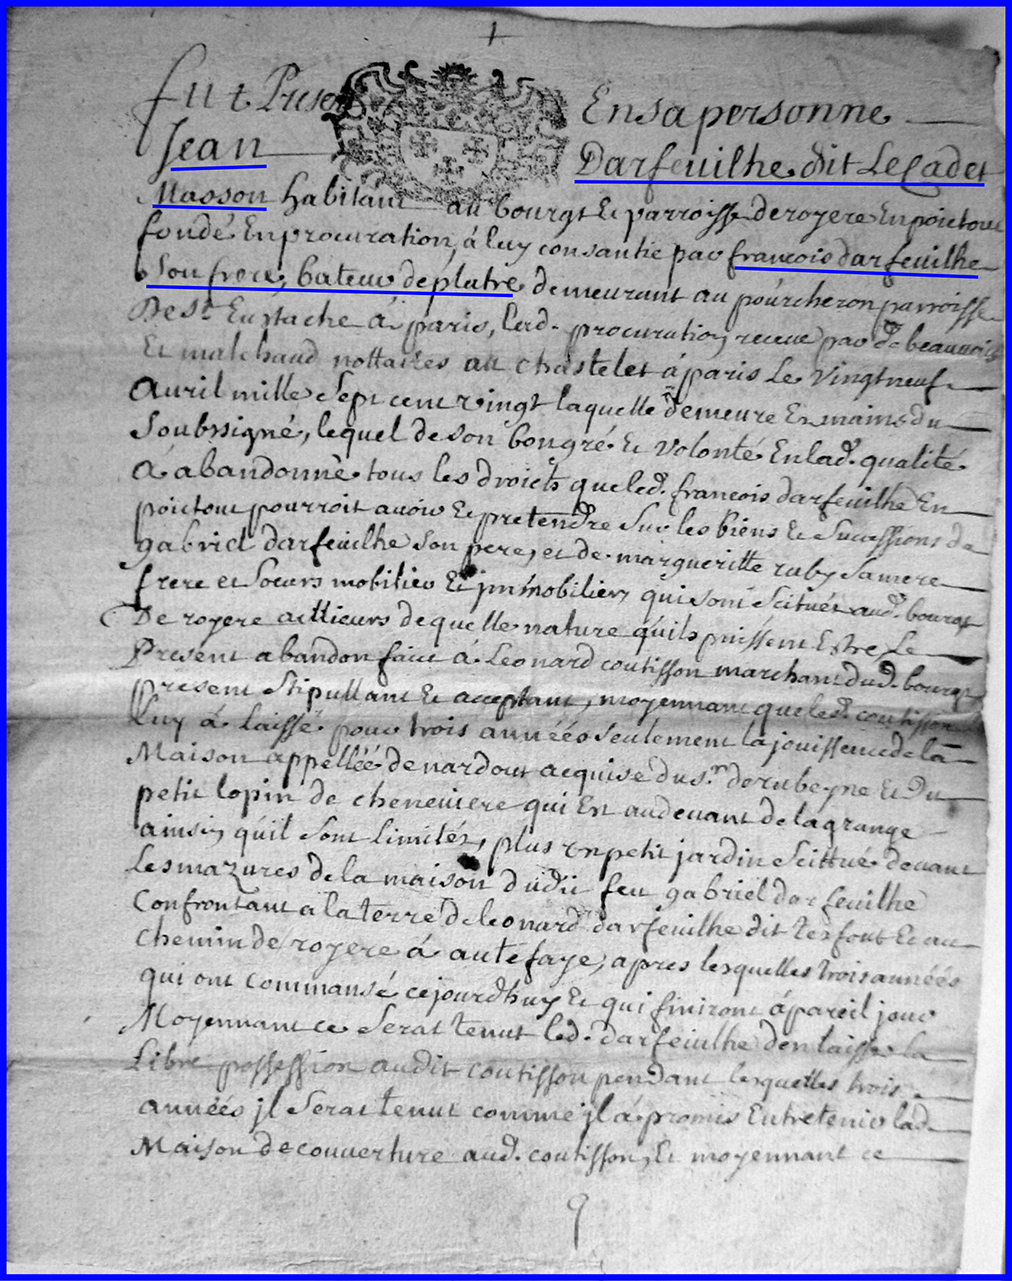 fut Present En sa personne
Jean Darfeuilhe dit Le Cadet
Masson habitant au bourgt Et parroisse de royere En poictou
fondé En procuration, á luy consantie par francois darfeuilhe
Son frere, bateur de platre demeurant au pourcheron parroisse
De st Eustache á paris, lad. procuration receue par de beauvais
Et malchaud nottaires au chastelet á paris Le vingt neuf
Avril mille Sept cent vingt laquelle demeure En mains du
Soubssigné, lequel de son bongré Et volonté En lad. qualité
A abandonné tous les droicts que led. francois darfeuilhe En
poictou pourroit avoir Et pretendre Sur les biens Et Successions de
gabriel darfeuilhe Son pere, et de margueritte ruby Sa mere
frere et Soeurs mobilier Et immobiliers qui sont Scitués aud. bourgt
De royere aillieurs de quelle nature qu'ils puissent Estre Le
Present abandon faict a Leonard coutisson marchant dud. bourgt
present Stipullant Et acceptant, moyennant que led. coutisson
Luy á laissé pour trois années seulement la jouissence de la
Maison appellée de nardout acquise du sr. de rubeyne Et du
petit lopin de cheneviere qui Est au devant de la grange
ainsin qu'il Sont Limités, plus un petit jardin Scittué devant
Les mazures de la maison dudit feu gabriel darfeuilhe
Confrontant a la terre de leonard darfeuilhe dit Et au
chemin de royere á autefaye, apres lesquelles trois années
qui ont commansé cejourdhuy Et qui finiront á pareil jour
Moyennant ce Serat tenut led. darfeuilhe den laisser la
Libre possession audit coutisson pendant lesquelles trois
années jl Serat tenut comme jl á promis Entretenir lad.
Maison de couverture aud. coutisson, Et moyennant ce